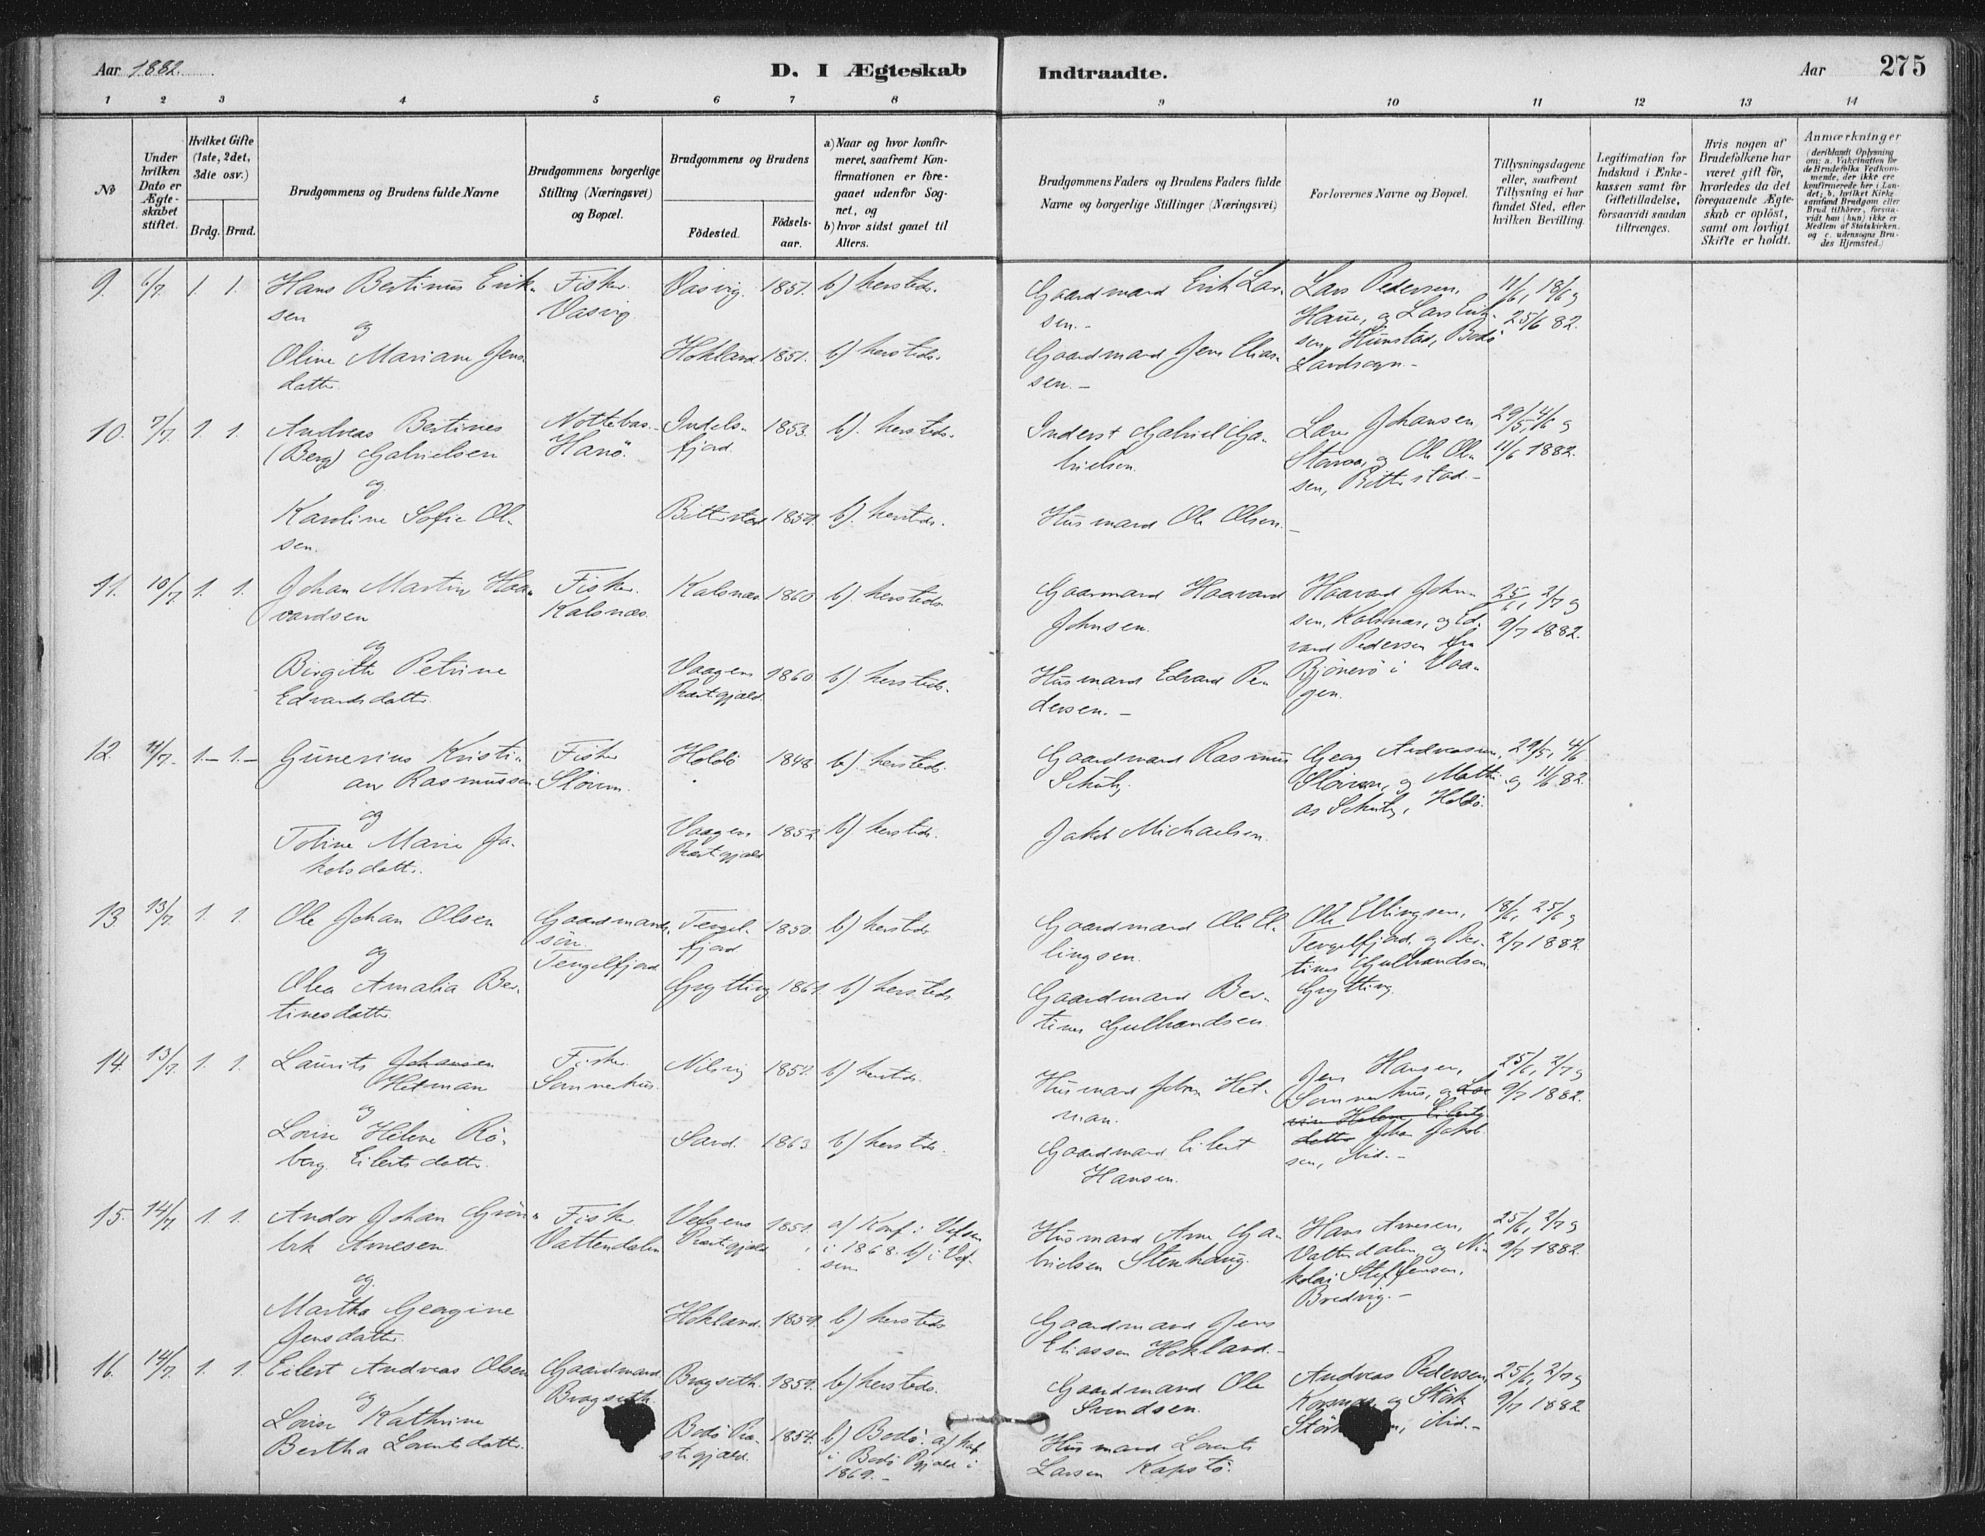 Aar 1882.
D. I Ægteskab
Indtraadte.
Aar 275
1 2 3 4 5 6 7 8 9 10 11 12 13 14
No
Under hvilken Dato er Ægteskabet stiftet.
Hvilket Gifte (1ste, 2det, 3die osv.)
Brdg. Brud.
Brudgommens og Brudens fulde Navne
Brudgommens borgerlige Stilling (Næringsvei) og Bopæl.
Brudgommens og Brudens
Fødested.
Fødselsaar.
a) Naar og hvor konfirmeret, saafremt Konfirmationen er foregaaet udenfor Sognet, og
b) hvor sidst gaaet til Alters.
Brudgommens Faders og Brudens Faders fulde Navne og borgerlige Stillinger (Næringsvei)
Forlovernes Navne og Bopæl.
Tillysningsdagene eller, saafremt Tillysning ei har fundet Sted, efter hvilken Bevilling.
Legitimation for Indskud i Enkekassen samt for Giftetilladelse, forsaavidt saadan tiltrænges.
Hvis nogen af Brudefolkene har været gift før, hvorledes da det foregaaende Ægteskab er opløst, samt om lovligt Skifte er holdt.
Anmærkninger
(deriblandt Oplysning om: a. Vakcination for de Brudefolks Vedkommende, der ikke ere konfirmerede her i Landet; b. hvilket Kirkesamfund Brudgom eller Brud tilhører, forsaavidt han (hun) ikke er Medlem af Statskirken, og c. udensogns Brudes Hjemsted.)
9. 6/7 1. 1. Hans Bertinus Eriksen
Fisker.
Vasvig
Vasvig. 1851. b) hersteds.
Gaardmand Erik Larsen.-
Lars Pedersen, Haue, og Lars Eriksen, Hunstad, Bodö Landsogn.-
11/6, 18/6 og 25/6 82.
og
Oline Mariane Jensdatter
Hokland 1851. b) hersteds.
Gaardmand Jens Eliassen.-
10. 7/7. 1. 1. Andreas Bertines (Berg) Gabrielsen
Hanö.
Indelsfjord. 1853. b). hersteds.
Inderst Gabriel Gabrielsen.
Johansen og Ole Olsen, Bitterstad.-
29/5, 4/6 og 11/6 1882.
og
Karoline Sofie Olsen.
Bitterstad 1859. b). hersteds.
Husmand Ole Olsen.-
11. 10/7. 1. 1. Johan Martin Haavardsen
Fisker.
Kalsnæs.
Kalsnæs. 1860. b). hersteds.
Gaarmand Haavard Johnsen.
Haavard Johnsen, Kalsnæs, og Edvard Pedersen fra Bjönerö i Vaagen.
25/6, 2/7 og 9/7 1882.
og
Birgitte Petrine Edvardsdatter.
Vaagens Præstgjæld. 1860. b) hersteds.
Husmand Edvard Pedersen.-
12. 11/7. 1.- 1.- Gunerius Kristian Rasmussen
Fisker
Holdö 1848 b). hersteds.
Gaardmand Rasmus Schulz.
Georg Andreasen, og Mathias Schulz, Holdö.
29/5, 4/6 og 11/6 82.
og
Toline Marie Jakobsdatter.
Vaagens Præstgjæld 1852. b) hersteds.
Jakob Michaelsen.
13 13/7. 1. 1. Ole Johan Olsen
Gaardmandssön.
Tengelfjord
Tengelfjord 1850. b) hersteds
Gaardmand Ole Ellingsen.
Ole Ellingsen, Tengelfjord, og Bertines Gulbrandsen Grytting.
18/6, 25/6 og 2/7 1882.
og
Olea Amalia Bertinesdatter
Grytting 1861. b) hersteds
Gaardmand Bertines Gulbrandsen.
14. 13/7. 1. 1. Laurits Johansen Hetman
Fisker.
Sommerhus.
1857. b) hersteds.
Husmand Johan Hetman.
Jens Hansen, Sommerhus, og Lovise Helene Eilertsdatter Johan Jakobsen, ibid.-
25/6, 2/7 og 9/7 1882.
og
Lovise Helene Röberg Eilertsdatter.
Sand. 1863. b) hersteds.
Gaardmand Eilert Hansen.
15. 14/7 1. 1. Andor Johan Grönbek Arnesen.
Fisker
Vattendalen
Vefsens Præstgjæld 1851. a) Konf. i Vefsen i 1868. b) i Vefsen
Husmand Arne Gabrielsen Stenhaug.
Hans Arnesen, Vattendalen, og Nikolai Steffensen, Bredvig.-
25/6, 2/7 og 9/7 1882.
og
Martha Georgine Jensdatter.
Hokland. 1859. b) hersteds
Gaardmand Jens Eliassen Hokland.-
16. 14/7. 1. 1. Eilert Andreas Olsen
Gaardmand.
Brogseth.
Brogseth. 1859. b) hersteds.
Gaardmand Ole Svendsen.
Andreas Pedersen, og ibid.-
25/6, 2/7 og 9/7 1882
og
Lovise Kathrine Bertha Lorentsdatter.
Bodö Præstegjæld. 1854. b) Bodö. a) konf. i Bodö Pgjæld i 1869.-
Husmand Lorents Larsen Kapstö.